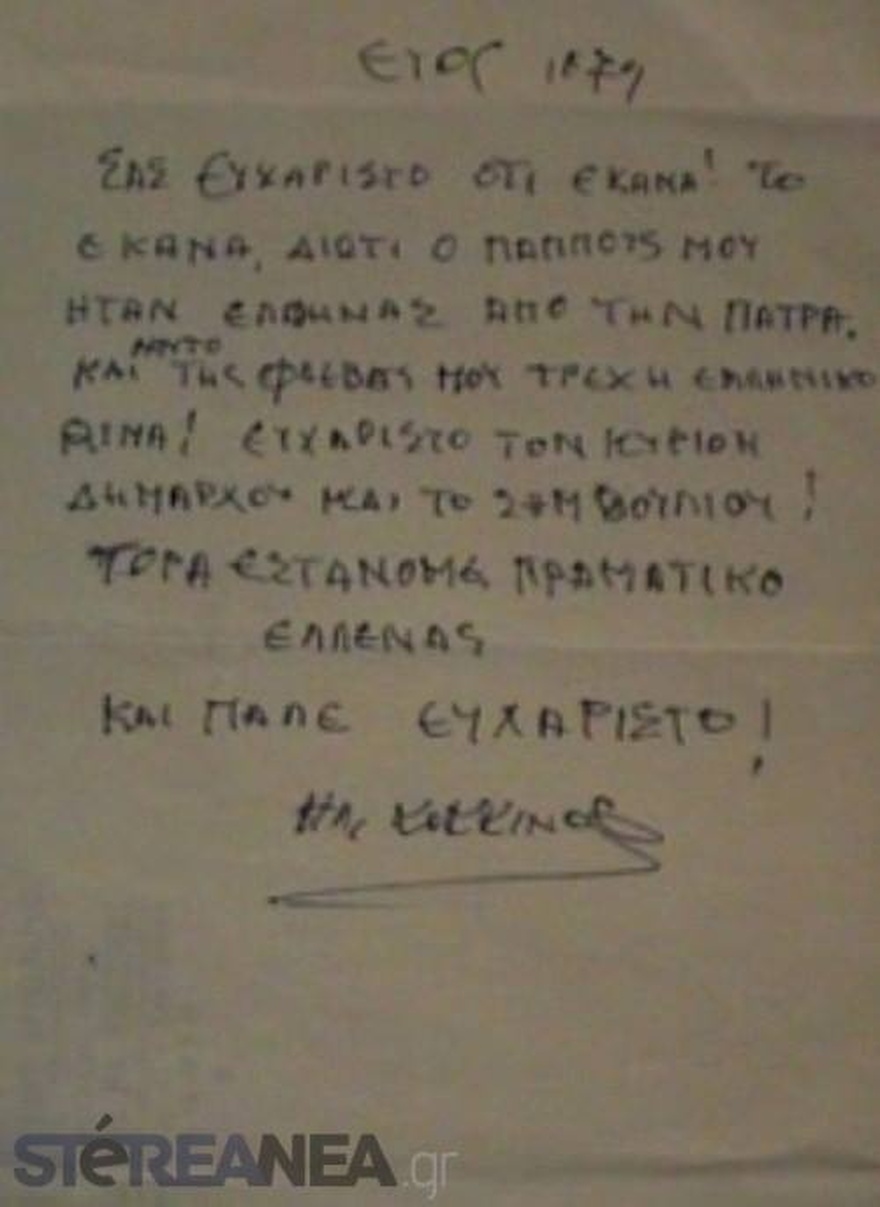 ΕΤΟΣ 1879
ΣΑΣ ΕΥΧΑΡΙΣΤΟ ΟΤΙ ΕΚΑΝΑ! ΤΟ
ΕΚΑΝΑ, ΔΙΩΤΙ Ο ΠΑΠΠΟΥΣ ΜΟΥ
ΗΤΑΝ ΕΛΛΗΝΑΣ ΑΠΟ ΤΗΝ ΠΑΤΡΑ.
ΚΑΙ ΤΗΣ ΦΛΕΒΕΣ ΜΟΥ ΤΡΕΧΗ ΕΛΛΗΝΙΚΟ
ΑΙΜΑ! ΕΥΧΑΡΙΣΤΟ ΤΟΝ ΚΥΡΙΟΝ
ΔΗΜΑΡΧΟΥ ΚΑΙ ΤΟ ΣΗΜΒΟΥΛΙΟΥ!
ΤΟΡΑ ΕΣΤΑΝΟΜΕ ΠΡΑΜΑΤΙΚΟ
ΕΛΛΕΝΑΣ
ΚΑΙ ΠΑΛΕ ΕΥΧΑΡΙΣΤΟ!
ΗΛ. ΚΟΚΚΙΝΟΣ
STéREANEA.gr